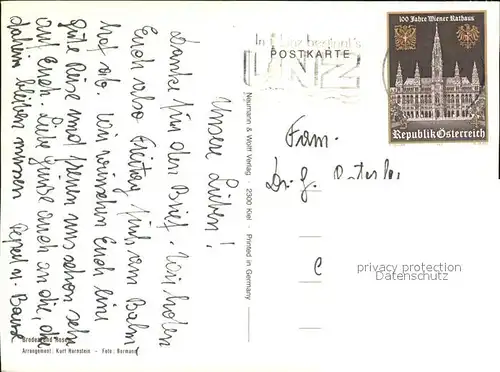 Unsere Lieben!
Danke für den Brief. Wir holen
Euch also Freitag früh am Bahn
hof ab. Wir wünschen Euch eine
gute Reise und freuen uns schon sehr
auf Euch. Liebe Grüsse auch an die, die
daheim bleiben müssen
Neumann & Wolff Verlag · 2300 Kiel · Printed in Germany
Arrangement: Kurt Hornstein - Foto: Bormann
In Linz beginnt's
LINZ
POSTKARTE
100 Jahre Wiener Rathaus
Republik Österreich
Fam.
Dr. G.
privacy protection
Datenschutz